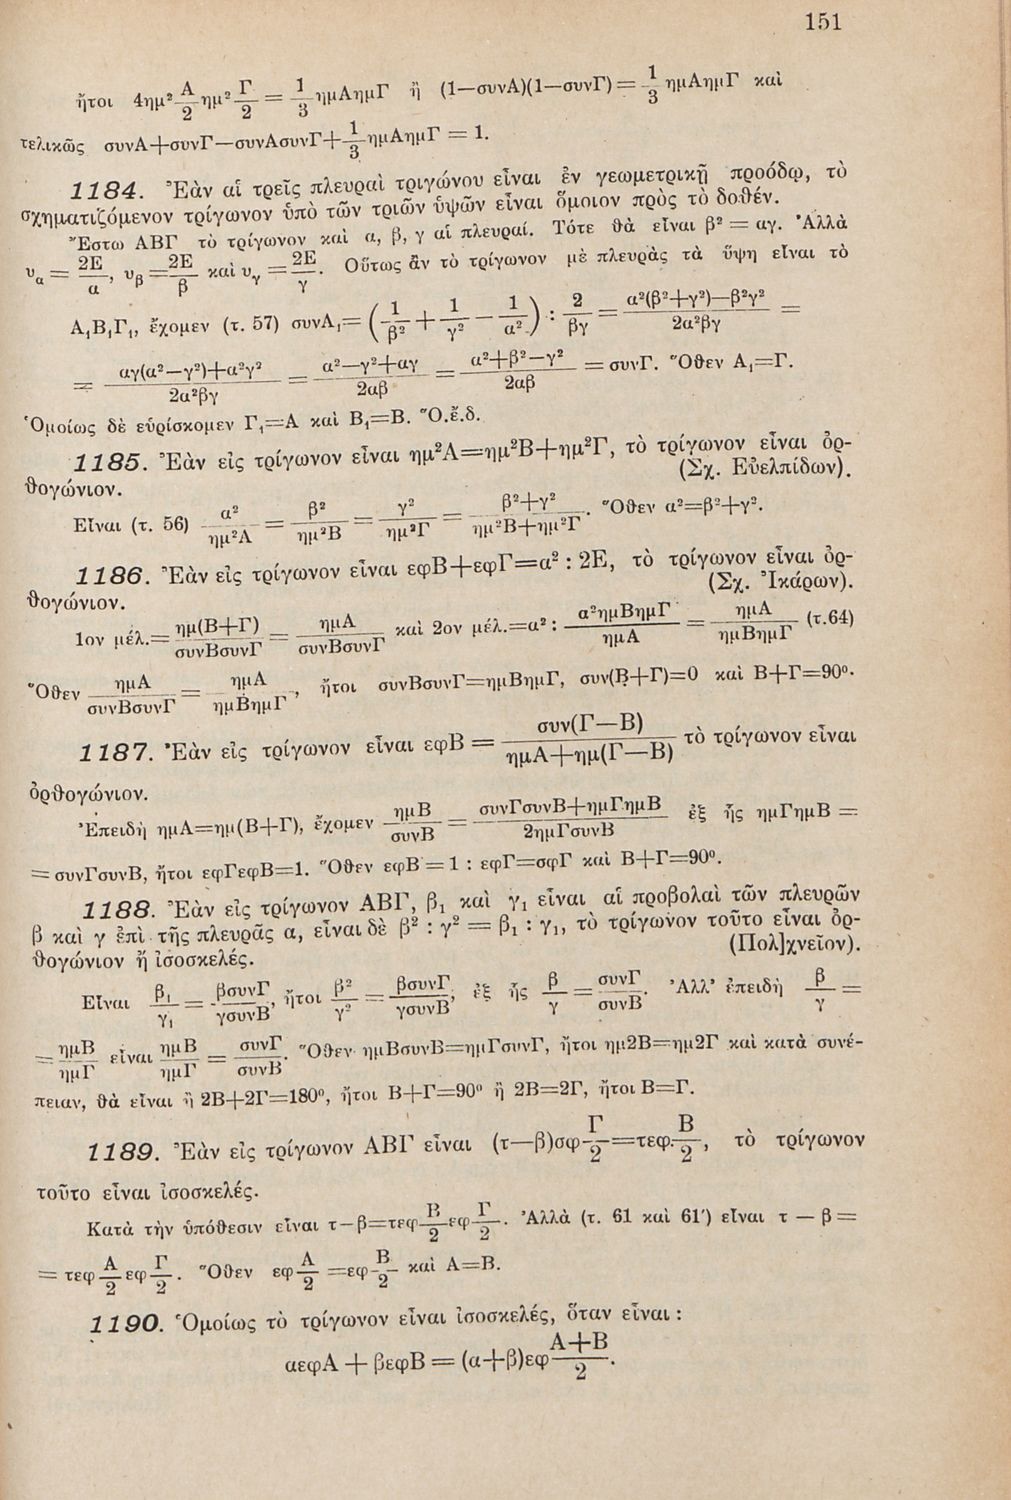 151
ἤτοι 4ημ² Α/2 ημ² Γ/2 = 1/3 ημΑημΓ ἢ (1—συνΑ)(1—συνΓ) = 1/3 ημΑημΓ καὶ
τελικῶς συνΑ+συνΓ—συνΑσυνΓ+1/3 ημΑημΓ = 1.
1184. Ἐὰν αἱ τρεῖς πλευραὶ τριγώνου εἶναι ἐν γεωμετρικῇ προόδῳ, τὸ
σχηματιζόμενον τρίγωνον ὑπὸ τῶν τριῶν ὑψῶν εἶναι ὅμοιον πρὸς τὸ δοθέν.
Ἔστω ΑΒΓ τὸ τρίγωνον καὶ α, β, γ αἱ πλευραί. Τότε θὰ εἶναι β² = αγ. Ἀλλὰ
υα = 2Ε/α, υβ = 2Ε/β καὶ υγ = 2Ε/γ. Οὕτως ἂν τὸ τρίγωνον μὲ πλευρὰς τὰ ὕψη εἶναι τὸ
Α₁Β₁Γ₁, ἔχομεν (τ. 57) συνΑ₁= (1/β² + 1/γ² — 1/α²) : 2/βγ = α²(β²+γ²)—β²γ² / 2α²βγ =
= αγ(α²—γ²)+α²γ² / 2α²βγ = α²—γ²+αγ / 2αβ = α²+β²—γ² / 2αβ = συνΓ. Ὅθεν Α₁=Γ.
Ὁμοίως δὲ εὑρίσκομεν Γ₁=Α καὶ Β₁=Β. Ὅ.ἔ.δ.
1185. Ἐὰν εἰς τρίγωνον εἶναι ημ²Α=ημ²Β+ημ²Γ, τὸ τρίγωνον εἶναι ὀρ-
θογώνιον. (Σχ. Εὐελπίδων).
Εἶναι (τ. 56) α²/ημ²Α = β²/ημ²Β = γ²/ημ²Γ = β²+γ² / ημ²Β+ημ²Γ. Ὅθεν α²=β²+γ².
1186. Ἐὰν εἰς τρίγωνον εἶναι εφΒ+εφΓ=α² : 2Ε, τὸ τρίγωνον εἶναι ὀρ-
θογώνιον. (Σχ. Ἰκάρων).
1ον μέλ.= ημ(Β+Γ)/συνΒσυνΓ = ημΑ/συνΒσυνΓ καὶ 2ον μέλ.=α² : α²ημΒημΓ/ημΑ = ημΑ/ημΒημΓ (τ.64)
Ὅθεν ημΑ/συνΒσυνΓ = ημΑ/ημΒημΓ, ἤτοι συνΒσυνΓ=ημΒημΓ, συν(Β+Γ)=0 καὶ Β+Γ=90⁰.
1187. Ἐὰν εἰς τρίγωνον εἶναι εφΒ = συν(Γ—Β) / ημΑ+ημ(Γ—Β) τὸ τρίγωνον εἶναι
ὀρθογώνιον.
Ἐπειδὴ ημΑ=ημ(Β+Γ), ἔχομεν ημΒ/συνΒ = συνΓσυνΒ+ημΓημΒ / 2ημΓσυνΒ ἐξ ἧς ημΓημΒ =
= συνΓσυνΒ, ἤτοι εφΓεφΒ=1. Ὅθεν εφΒ = 1 : εφΓ=σφΓ καὶ Β+Γ=90⁰.
1188. Ἐὰν εἰς τρίγωνον ΑΒΓ, β₁ καὶ γ₁ εἶναι αἱ προβολαὶ τῶν πλευρῶν
β καὶ γ ἐπὶ τῆς πλευρᾶς α, εἶναι δὲ β² : γ² = β₁ : γ₁, τὸ τρίγωνον τοῦτο εἶναι ὀρ-
θογώνιον ἢ ἰσοσκελές. (Πολ]χνεῖον).
Εἶναι β₁/γ₁ = βσυνΓ/γσυνΒ, ἤτοι β²/γ² = βσυνΓ/γσυνΒ, ἐξ ἧς β/γ = συνΓ/συνΒ. Ἀλλ' ἐπειδὴ β/γ =
= ημΒ/ημΓ εἶναι ημΒ/ημΓ = συνΓ/συνΒ. Ὅθεν ημΒσυνΒ=ημΓσυνΓ, ἤτοι ημ2Β=ημ2Γ καὶ κατὰ συνέ-
πειαν, θὰ εἶναι ἢ 2Β+2Γ=180⁰, ἤτοι Β+Γ=90⁰ ἢ 2Β=2Γ, ἤτοι Β=Γ.
1189. Ἐὰν εἰς τρίγωνον ΑΒΓ εἶναι (τ—β)σφ Γ/2 =τεφ Β/2, τὸ τρίγωνον
τοῦτο εἶναι ἰσοσκελές.
Κατὰ τὴν ὑπόθεσιν εἶναι τ—β=τεφ Β/2 εφ Γ/2. Ἀλλὰ (τ. 61 καὶ 61') εἶναι τ — β =
= τεφ Α/2 εφ Γ/2. Ὅθεν εφ Α/2 =εφ Β/2 καὶ Α=Β.
1190. Ὁμοίως τὸ τρίγωνον εἶναι ἰσοσκελές, ὅταν εἶναι :
αεφΑ + βεφΒ = (α+β)εφ Α+Β/2.